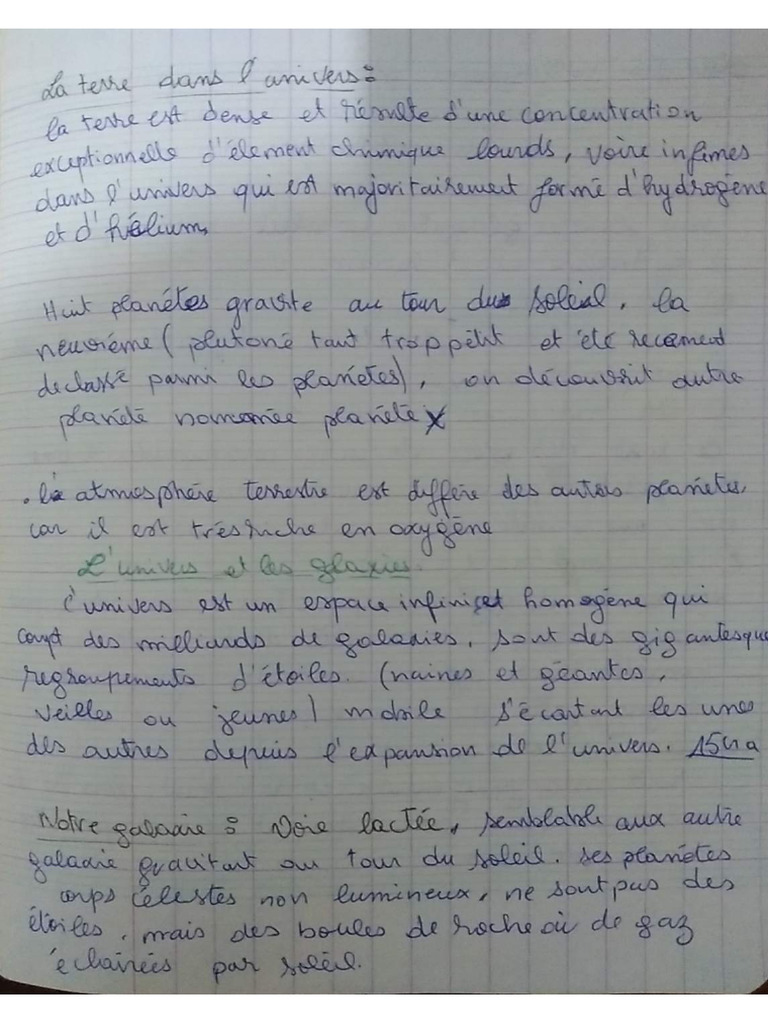 La terre dans l'univers :
la terre est dense et résulte d'une concentration
exceptionnelle d'élement chimique lourds, voire infimes
dans l'univers qui est majoritairement formé d'hydrogène
et d'hélium,
Huit planétes gravite au tour du soléil. la
neuviéme ( plutoné tant trop pétit et été recement
declassé parmi les planétes), on découvrit autre
planété nommée planété X
. la atmosphére terrestre est différe des autres planétes,
car il est trés riche en oxygène
L'univers et les glaxies.
l'univers est un espace infini et homogène qui
compt des milliards de galaxies. sont des gigantesque
regroupements d'étoiles. (naines et géantes,
veilles ou jeunes) mobile s'écartant les unes
des autres depuis l'expansion de l'univers.
Notre galaxie : Voie lactée, semblable aux autre
galaxie gravitant au tour du soleil. ses planétes
corps célestes non lumineux, ne sont pas des
étoiles, mais des boules de roche où de gaz
éclairées par soléil.